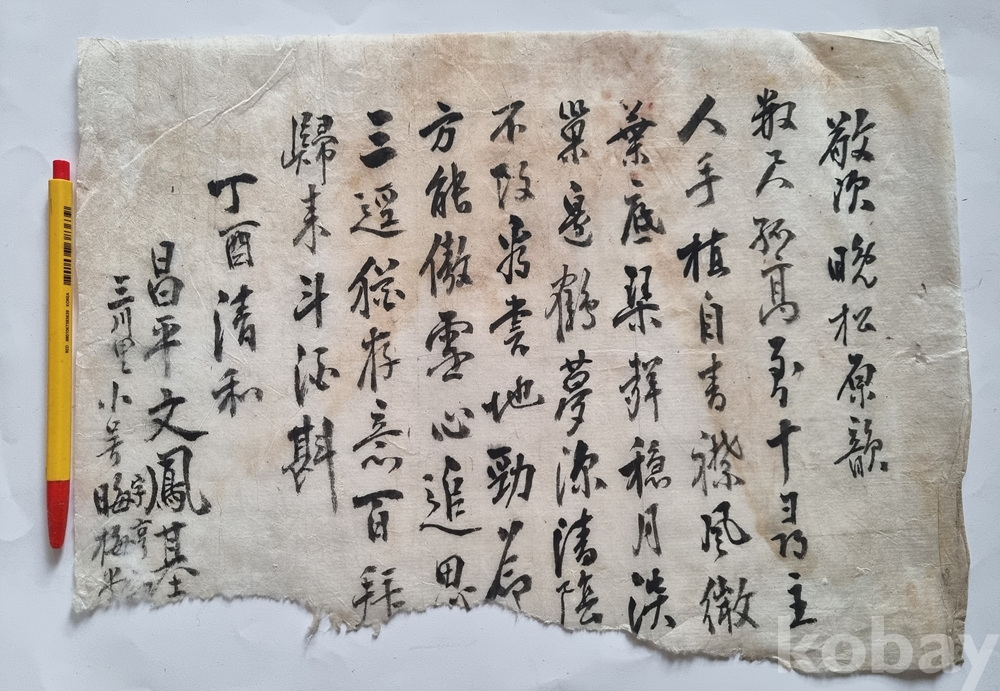 敬次晩松原韻
数尺孤高至十尋主
人手植自青襟風微
葉底琹聲穏月淡
巢邊鶴夢深清陰
不改雲地勁節
方能傲雪心追思
三逕猶存意百拜
歸来斗酒斟
丁酉清和
昌平文鳳基
字亨
三川里小号晦梅
kobay